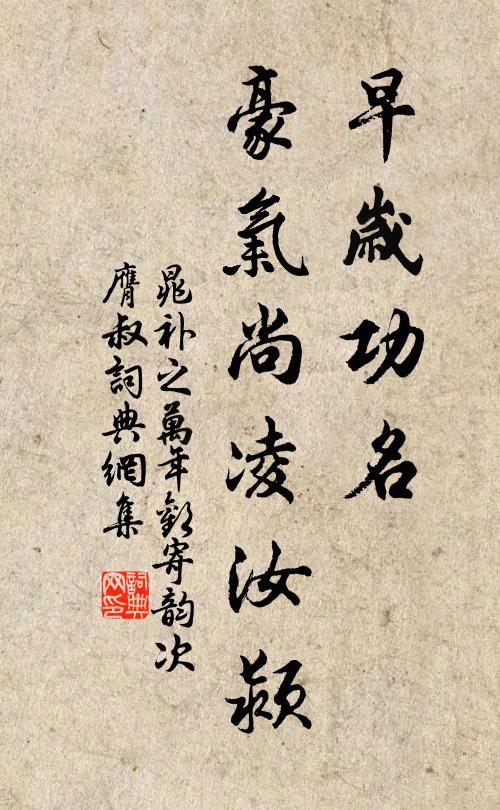 早歲功名
豪氣尚凌汝潁
晁补之萬年歡寄韵次
膺叔詞典網集
詞典网印